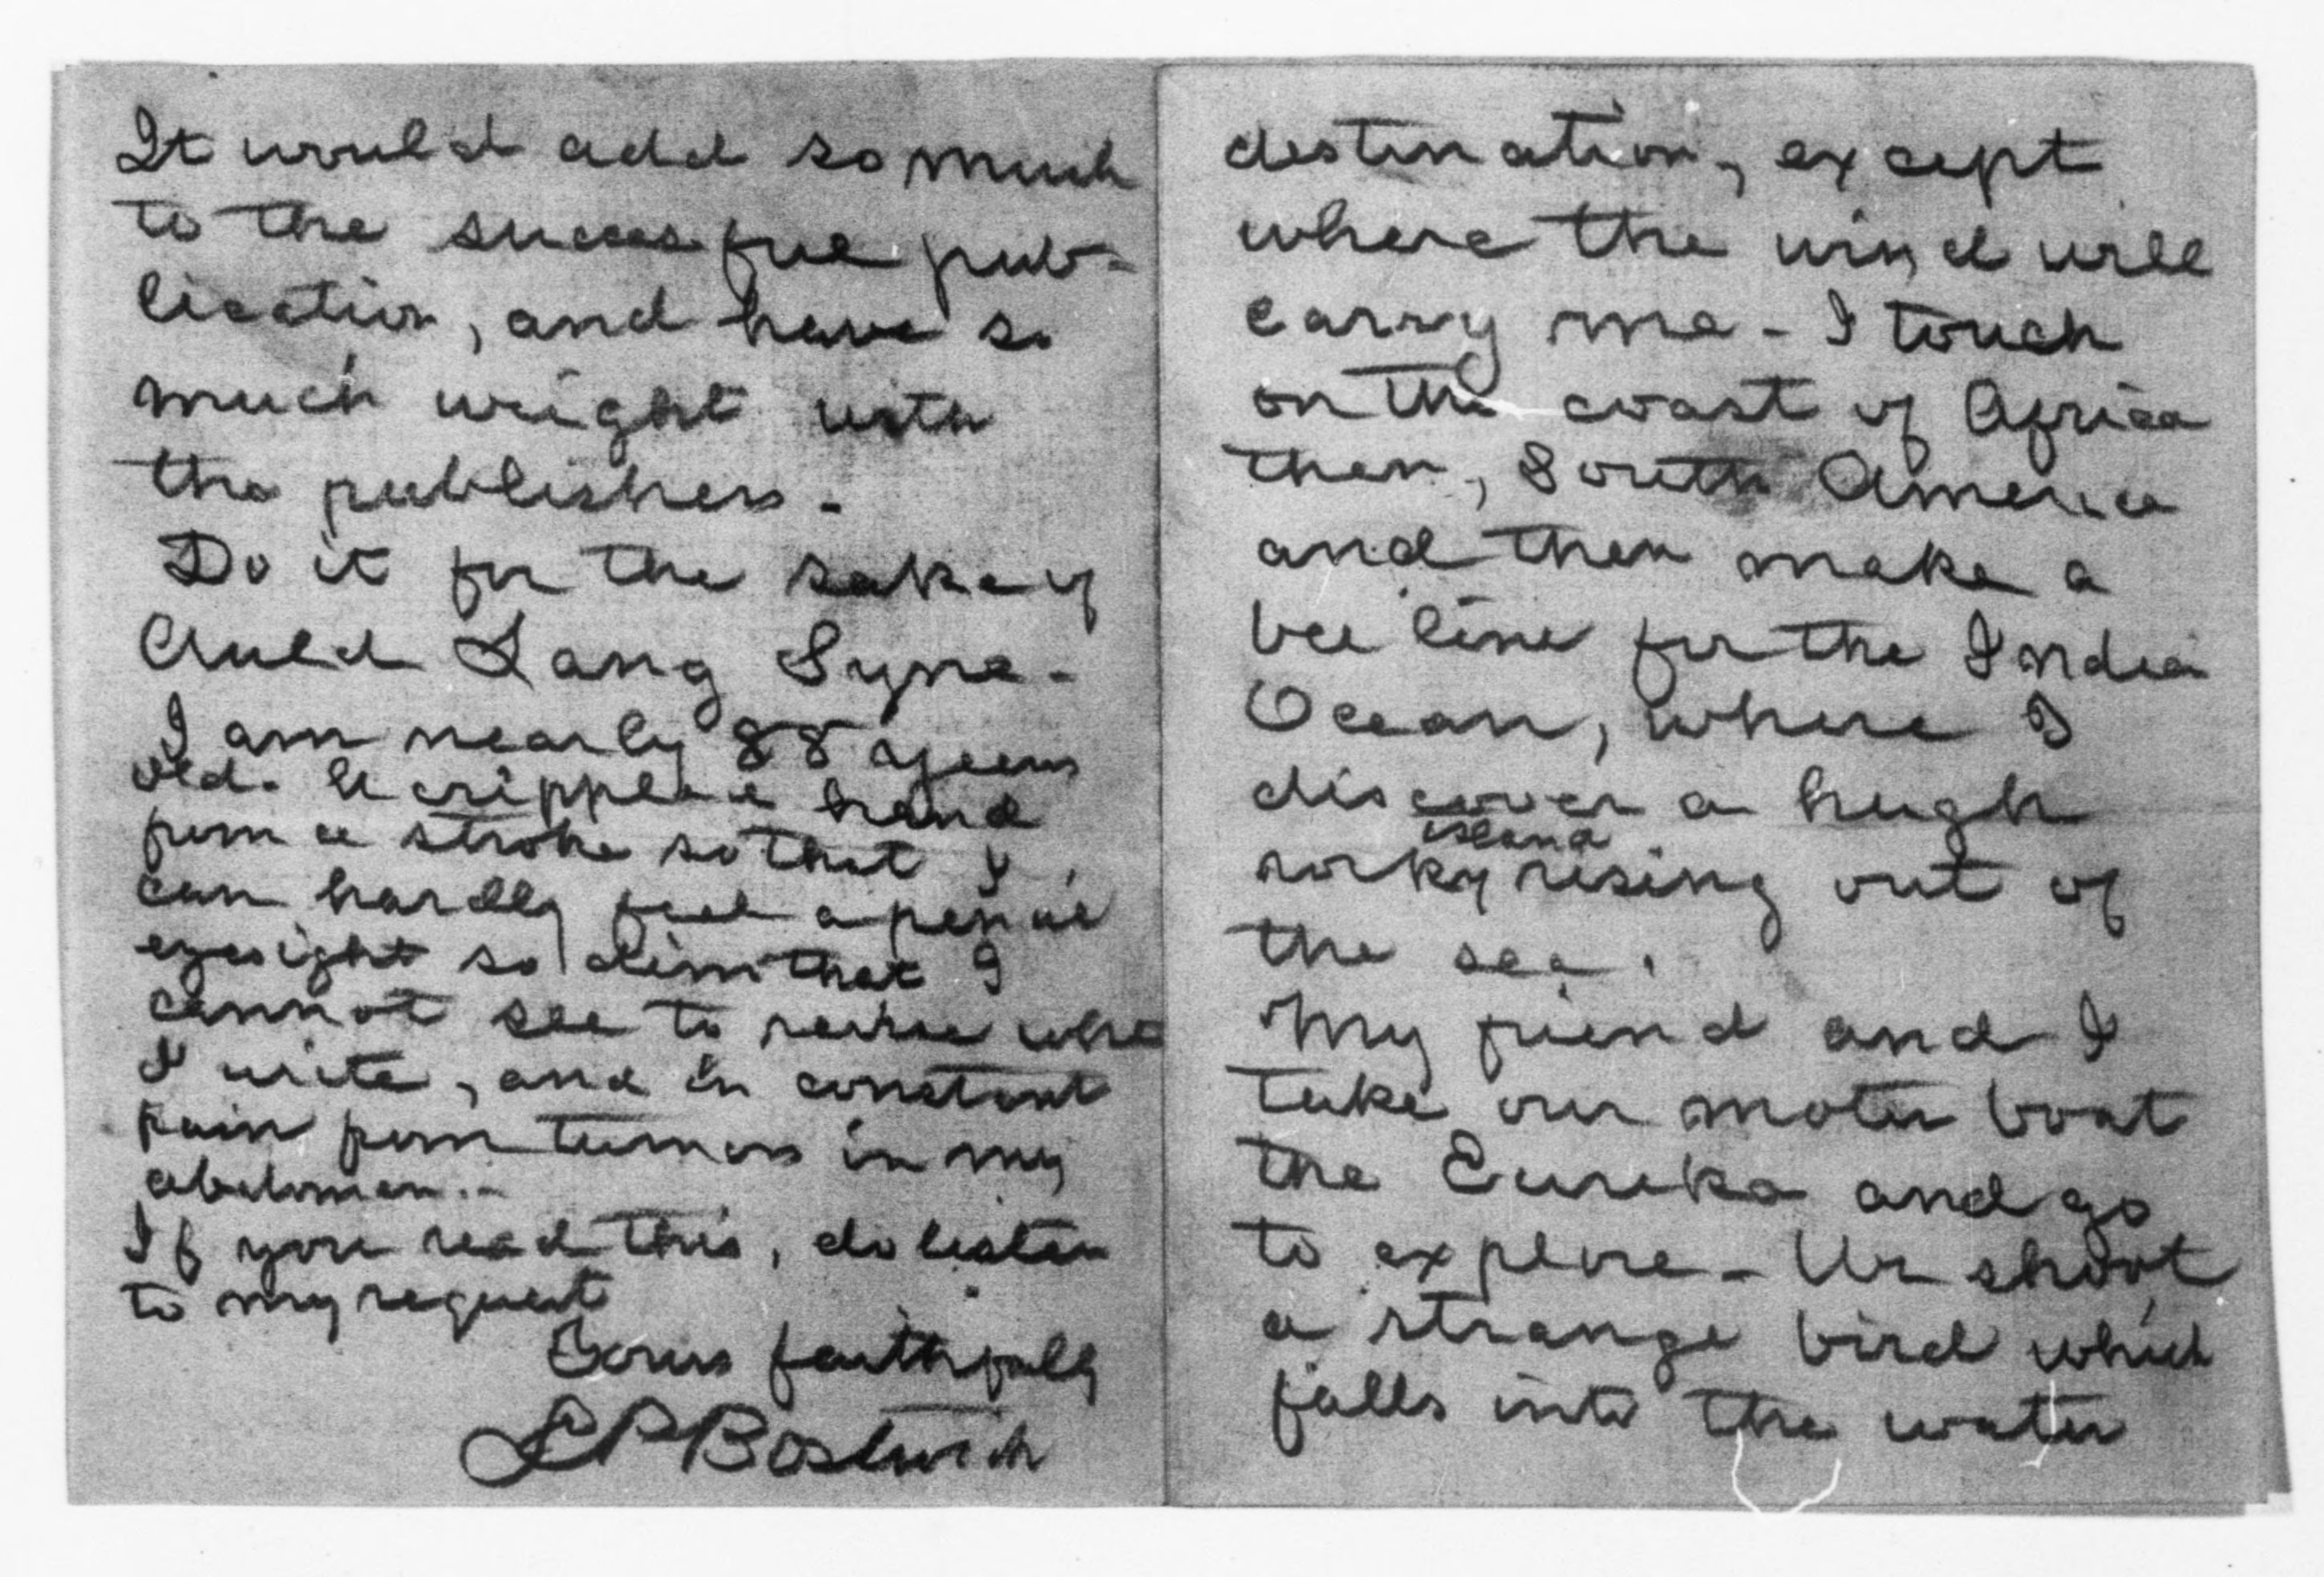 It would add so much
to the successful pub-
lication, and have so
much weight with
the publishers.
Do it for the sake of
Auld Lang Syne.
I am nearly 88 years
old. A crippled hand
from a stroke so that I
can hardly feel a pencil
eyesight so dim that I
cannot see to revise wha
I write, and in constant
pain from tumors in my
abdomen.
If you read this, do listen
to my request
Yours faithfully
Bostwick
destination, except
where the wind will
carry me - I touch
on the coast of Africa
then, South America
and then make a
bee line for the India
Ocean, where I
discover a hugh
rocky island rising out of
the sea.
My friend and I
take our motor boat
the Eureka and go
to explore - We shoot
a strange bird which
falls into the water